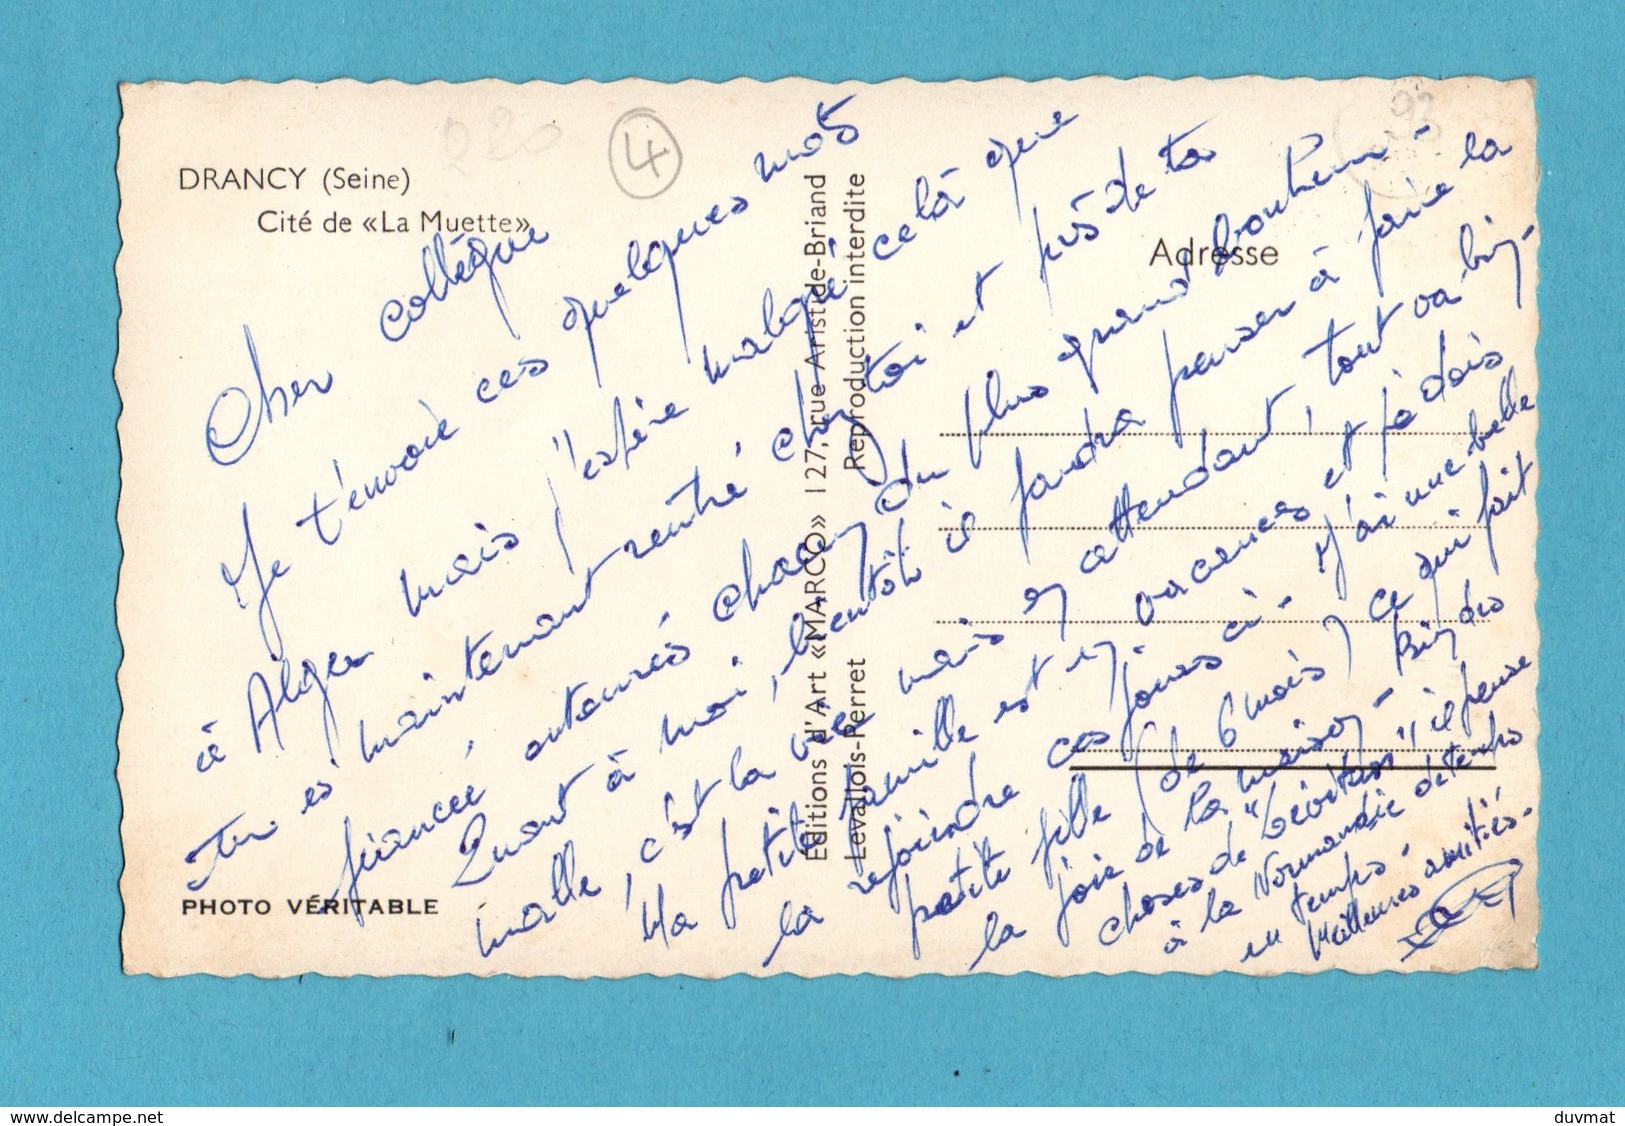 220
4
93
DRANCY (Seine)
Cité de «La Muette»
Adresse
Cher collègue
Je t'envoie ces quelques mots
à Alger mais j'espère malgré celà que
tu es maintenant rentré chez toi et près de ta
fiancée, entourés chacun du plus grand bonheur -
Quant à moi, bientôt il faudra penser à faire la
malle, c'est la vie mais en attendant, tout va bien -
Ma petite famille est en vacances et je dois
la rejoindre ces jours ci - J'ai une belle
petite fille (de 6 mois) ce qui fait
la joie de la maison - Bien des
choses de il pense
à la Normandie de temps
en temps -
Meilleures amitiés -
Éditions d'Art «MARCO» 127, rue Aristide-Briand
Levallois-Perret Reproduction interdite
PHOTO VÉRITABLE
www.delcampe.net
duvmat